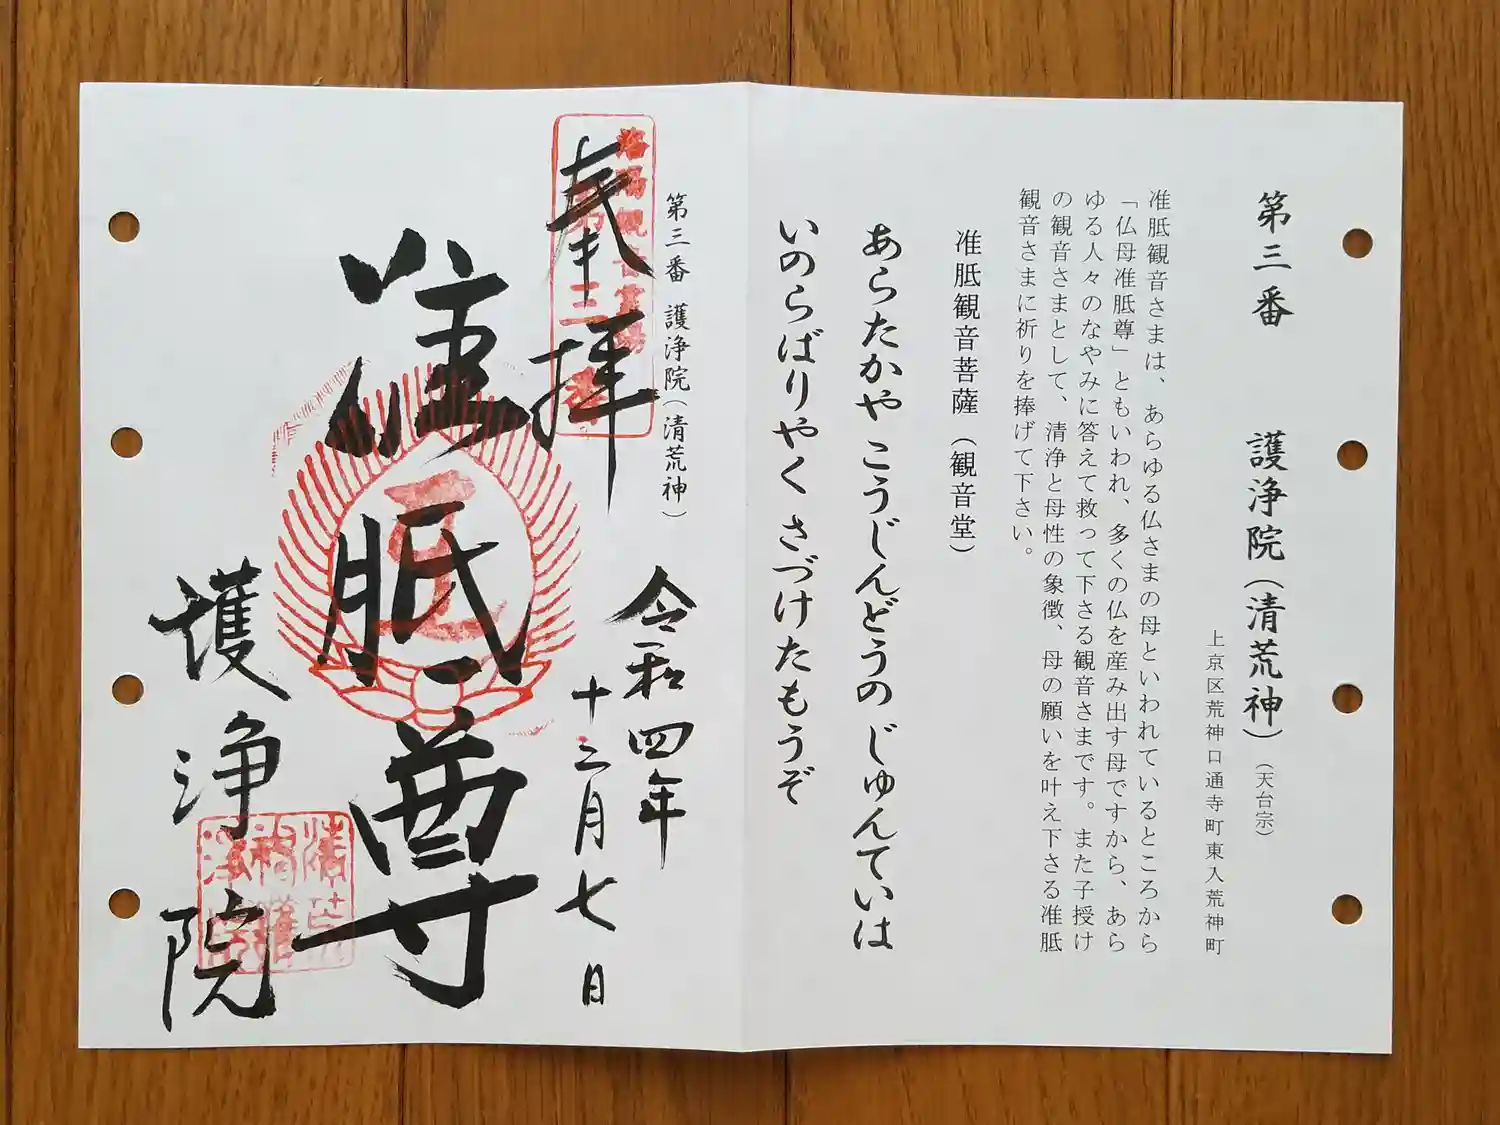 第三番 護浄院（清荒神）（天台宗）
上京区荒神口通寺町東入荒神町
准胝観音さまは、あらゆる仏さまの母といわれているところから
「仏母准胝尊」ともいわれ、多くの仏を産み出す母ですから、あら
ゆる人々のなやみに答えて救って下さる観音さまです。また子授け
の観音さまとして、清浄と母性の象徴、母の願いを叶え下さる准胝
観音さまに祈りを捧げて下さい。
准胝観音菩薩（観音堂）
あらたかや こうじんどうの じゅんていは
いのらばりやく さづけたもうぞ
第三番 護浄院（清荒神）
洛陽観音霊場
第三番
奉拝
令和四年
十二月七日
准胝尊
護浄院